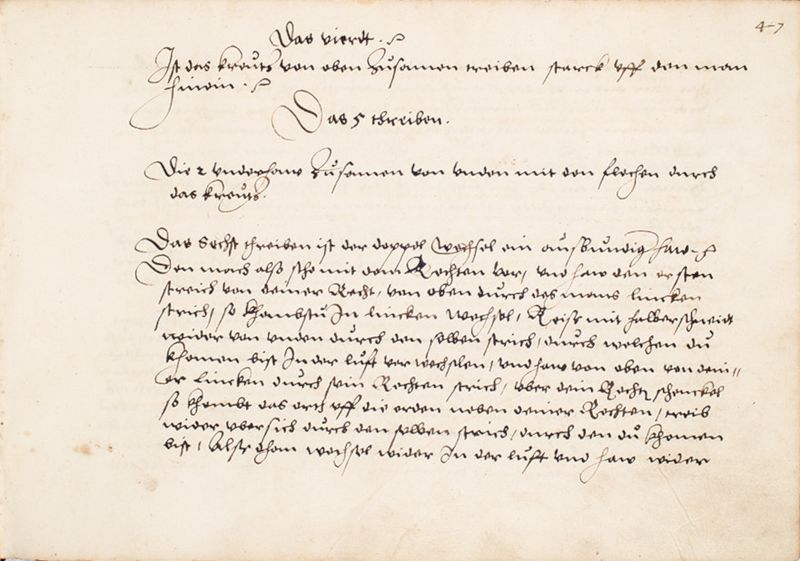 47
Das vierdt.
Ist das kreutz von oben Zusamen treiben starck uff den man
hinein.
Das 5 threiben.
Die 2 underhaw Zusamen von unden mit den flechen durch
das kreutz.
Das Sechst threiben ist der doppel Wechsel ein ausbundig haw
Den mach alss steh mit dem Rechten vor, und haw den ersten
streich von deiner Recht, von oben durch des mans lincken
strich, so khombstu In lincken Wechsel, Reiss mit halber schneidt
wider von unden durch den selben strich, durch welchen du
khomen bist In der luft verwechslen, und haw von oben von dein=
er Lincken durch sein Rechten strich, uber dein Recht schenckel
so khombt das orth uff die erden neben deiner Rechten, treib
wider ubersich durch den selben strich, durch den du khomen
bist, wechsel wider In der luft und haw wider